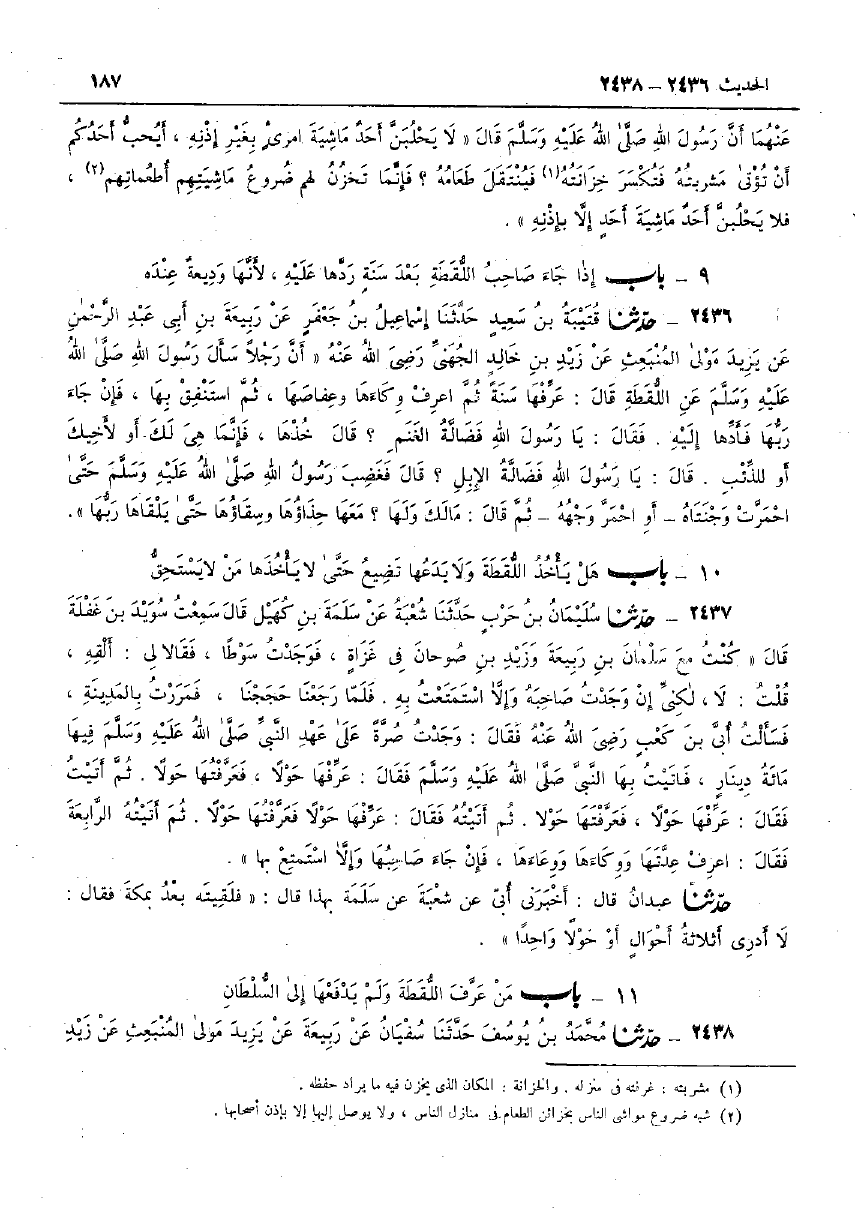 الحديث ٢٤٣٦ – ٢٤٣٨ ١٨٧
عَنْهُمَا أَنَّ رَسُولَ اللهِ صَلَّى اللهُ عَلَيْهِ وَسَلَّمَ قَالَ « لَا يَحْلُبَنَّ أَحَدٌ مَاشِيَةَ امرىءٍ بِغَيْرِ إِذْنِهِ ، أَيُحبُّ أَحَدُكُم
أَنْ تُؤْتىٰ مَشربتُهُ فَتُكْسَرَ خِزَانَتُهُ(١) فَيُنْتَقلَ طَعَامُهُ ؟ فَإِنَّما تَخزُنُ لهم ضُروعُ مَاشِيَتِهِم أُطعُمَاتِهم(٢) ،
فلا يَحْلُبنَّ أَحَدٌ مَاشِيَةَ أَحَدٍ إِلَّا بِإِذْنِهِ » .
٩ – باب إِذَا جَاءَ صَاحِبُ اللُّقَطَةِ بَعْدَ سَنَةٍ رَدَّها عَلَيْهِ ، لأَنَّهَا وَدِيعةٌ عِنْدَه
٢٤٣٦ – حدّثنا قُتَيْبَةُ بنُ سَعِيدٍ حَدَّثَنَا إِسْمَاعيلُ بنُ جَعْفَرٍ عَنْ رَبِيعَةَ بنِ أَبِى عَبْدِ الرَّحْمٰنِ
عَن يَزِيدَ مَوْلىٰ المُنْبَعِثِ عَنْ زَيْدِ بنِ خَالِدٍ الجُهَنىِّ رَضِىَ اللهُ عَنْهُ « أَنَّ رَجُلاً سَأَلَ رَسُولَ اللهِ صَلَّى اللهُ
عَلَيْهِ وَسَلَّمَ عَنِ اللُّقَطَةِ قَالَ : عَرِّفْهَا سَنَةً ثُمَّ اعرِفْ وِكَاءَهَا وعِفاصَهَا ، ثُمَّ استَنْفِقْ بِهَا ، فَإِنْ جَاءَ
رَبُّهَا فَأَدِّها إِلَيْهِ . فَقَالَ : يَا رَسُولَ اللهِ فَضَالَّةُ الغَنَمِ ؟ قَالَ خُذْهَا ، فَإِنَّمَا هِىَ لَكَ أو لأَخِيكَ
أَو للذِّئْبِ . قَالَ : يَا رَسُولَ اللهِ فَضَالَّةُ الإِبِلِ ؟ قَالَ فَغَضِبَ رَسُولُ اللهِ صَلَّى اللهُ عَلَيْهِ وَسَلَّمَ حَتَّىٰ
احْمَرَّتْ وَجْنَتَاهُ – أَو احْمَرَّ وَجْهُهُ – ثُمَّ قَالَ : مَالَكَ وَلَهَا ؟ مَعَهَا حِذَاؤُهَا وسِقَاؤُهَا حَتَّىٰ يَلْقَاهَا رَبُّهَا » .
١٠ – باب هَلْ يَأْخُذُ اللُّقَطَةَ وَلَا يَدَعُهَا تَضِيعُ حَتَّىٰ لا يَأْخُذَها مَنْ لا يَسْتَحِقُّ
٢٤٣٧ – حدّثنا سُلَيْمَانُ بنُ حَرْبٍ حَدَّثَنَا شُعْبَةُ عَنْ سَلَمَةَ بنِ كُهَيْلٍ قَالَ سَمِعْتُ سُوَيْدَ بنَ غَفْلَةَ
قَالَ « كُنْتُ معَ سَلْمَانَ بنِ رَبِيعَةَ وَزَيْدِ بنِ صُوحانَ فِى غَزَاةٍ ، فَوَجَدْتُ سَوْطًا ، فَقَالا لى : أَلْقِهِ ،
قُلْتُ : لَا ، لٰكنِّى إِنْ وَجَدْتُ صَاحِبَهُ وَإِلَّا اسْتَمتَعْتُ بِهِ . فَلَمَّا رَجَعْنَا حَجَجْنَا ، فَمَرَرْتُ بِالمَدِينَةِ ،
فَسَأَلْتُ أُبَىَّ بنَ كَعْبٍ رَضِىَ اللهُ عَنْهُ فَقَالَ : وَجَدْتُ صُرَّةً عَلىٰ عَهْدِ النَّبىِّ صَلَّى اللهُ عَلَيْهِ وَسَلَّمَ فِيهَا
مَائَةُ دِينَارٍ ، فَأَتَيْتُ بِهَا النَّبىَّ صَلَّى اللهُ عَلَيْهِ وَسَلَّمَ فَقَالَ : عَرِّفْهَا حَوْلًا ، فَعَرَّفْتُهَا حَولًا . ثُمَّ أَتَيْتُ
فَقَالَ : عَرِّفْهَا حَوْلًا ، فَعَرَّفْتُهَا حَوْلا . ثُم أَتَيْتُهُ فَقَالَ : عَرِّفْهَا حَوْلًا فَعَرَّفْتُهَا حَوْلًا . ثُمَ أَتَيْتُهُ الرَّابِعَةَ
فَقَالَ : اعرِفْ عِدَّتَهَا وَوِكَاءَهَا وَوِعَاءَهَا ، فَإِنْ جَاءَ صَاحِبُهَا وَإِلَّا اسْتَمتِعْ بها » .
حدّثنا عبدانُ قال : أَخْبَرَنى أَبى عن شعْبَةَ عن سَلَمَة بهذا قال : « فلَقِيتُه بعْدُ بمكةَ فقال :
لَا أَدرِى أَثلاثةُ أَحْوَالٍ أَوْ حَوْلًا وَاحِدًا » .
١١ – باب مَنْ عَرَّفَ اللُّقَطَةَ وَلَمْ يَدْفَعْهَا إِلىٰ السُّلْطَانِ
٢٤٣٨ – حدّثنا مُحَمَّدُ بنُ يُوسُفَ حَدَّثَنَا سُفْيَانُ عَنْ رَبِيعَةَ عَنْ يَزِيدَ مَوْلىٰ المُنْبَعِثِ عَنْ زَيْدِ
(١) مشربته : غرفته فى منزله . والخزانة : المكان الذى يخزن فيه ما يراد حفظه .
(٢) شبه ضروع مواشى الناس بخزائن الطعام فى منازل الناس ، ولا يوصل إليها إلا بإذن أصحابها .